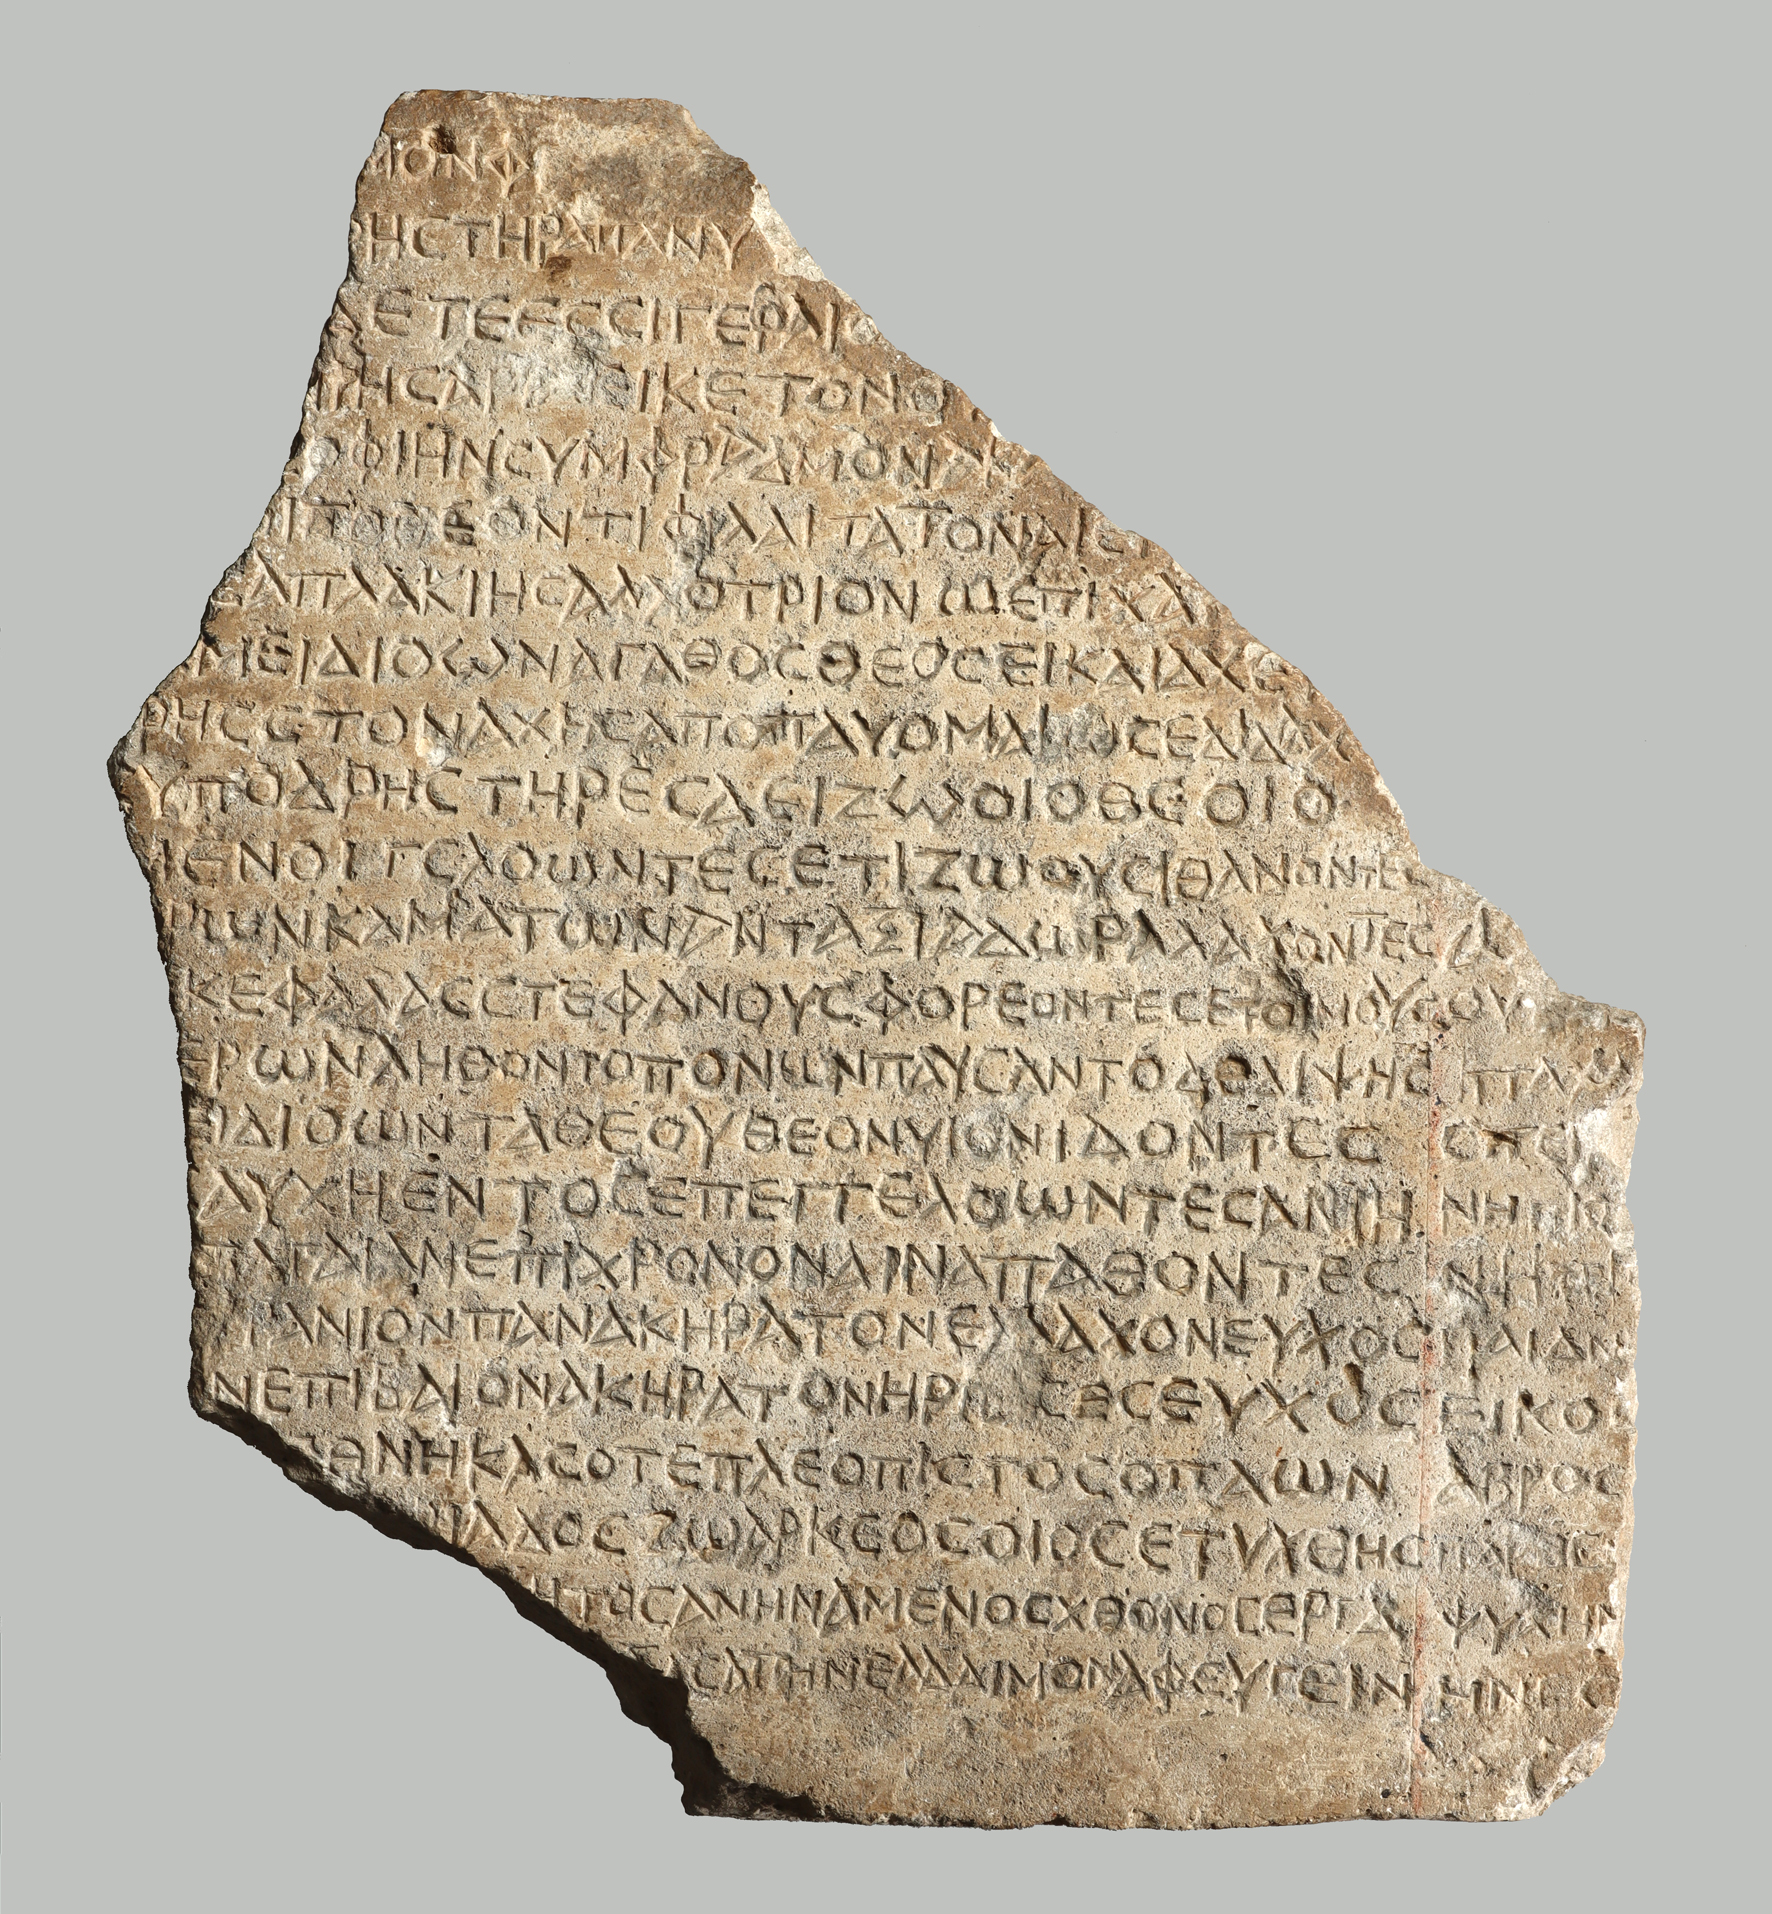 ΜΟΝΦ
ΡΗϹΤΗΡΑΠΑΝΥ
ΔΕΤΕΕϹϹΙΓΕΦΑΙΟ
ΙΚΕΤΟΝΘ
ΟΦΙΗΝϹΥΜΦΡΑΔΜΟΝΑΚ
ΕΟΝΤΙΦΙΛΑΙΤΑΤΟΝΑΙϹ
ϹΑΠΛΑΚΙΗϹΑΛΛΟΤΡΙΟΝΩΕΠΙΧΑ
ΜΕΙΔΙΟΩΝΑΓΑΘΟϹΘΕΟϹΕΙΚΑΙΔΥϹ
ΡΗϹϹΤΟΝΑΧΗϹΑΠΟΠΑΥΟΜΑΙΩϹΕΔΙΔΑΧ
ΥΠΟΔΡΗϹΤΗΡΕϹΑΕΙΖΩΟΙΟΘΕΟΙΟ
ΜΕΝΟΙΓΕΛΟΩΝΤΕϹΕΤΙΖΩΟΥϹΙΘΑΝΟΝΤΕϹ
ΡΩΝΚΑΜΑΤΩΝΑΝΤΑΞΙΑΔΩΡΑΛΑΧΟΝΤΕϹΑ
ΚΕΦΑΛΑϹϹΤΕΦΑΝΟΥϹΦΟΡΕΟΝΤΕϹΕΤΟΙΜΟΥϹΟΥ
ΕΡΩΝΛΗΘΟΝΤΟΠΟΝΩΝΠΑΥϹΑΝΤΟΔΘΛΙΨΗϹ ΠΑΥ
ΕΙΔΙΟΩΝΤΑΘΕΟΥΘΕΟΝΥΙΟΝΙΔΟΝΤΕϹ ΟΠΕ
ΔΥΧΗΕΝΤΟϹΕΠΕΓΓΕΛΟΩΝΤΕϹΑΝΙΗ ΝΗΠΙ
ΠΑΓΑΙΑΝΕΠΙΧΡΟΝΟΝΑΙΝΑΠΑΘΟΝΤΕϹ ΝΗΠΙ
ΡΑΝΙΟΝΠΑΝΑΚΗΡΑΤΟΝΕΛΛΑΧΟΝΕΥΧΟϹ ΠΑΙΔΝ
ΝΕΠΙΒΑΙΟΝΑΚΗΡΑΤΟΝΗΡ ϹΕϹΕΥΧΟϹ ΕΙΚΟ
ΘΝΗΚΑϹΟΤΕΠΛΕΟΠΙϹΤΟϹΟΠΑΩΝ ΑΒΡΟϹ
ΙΛΛΟϹΖΩΑΡΚΕΟϹΟΙΟϹΕΤΥΧΘΗϹ
ΗΤΟϹΑΝΗΝΑΜΕΝΟϹΧΘΟΝΟϹΕΡΓΑ ΨΥΧΗΝ
ϹΑΠΗΝΕΑΔΑΙΜΟΝΑΦΕΥΓΕΙΝ ΗΝΠΟ